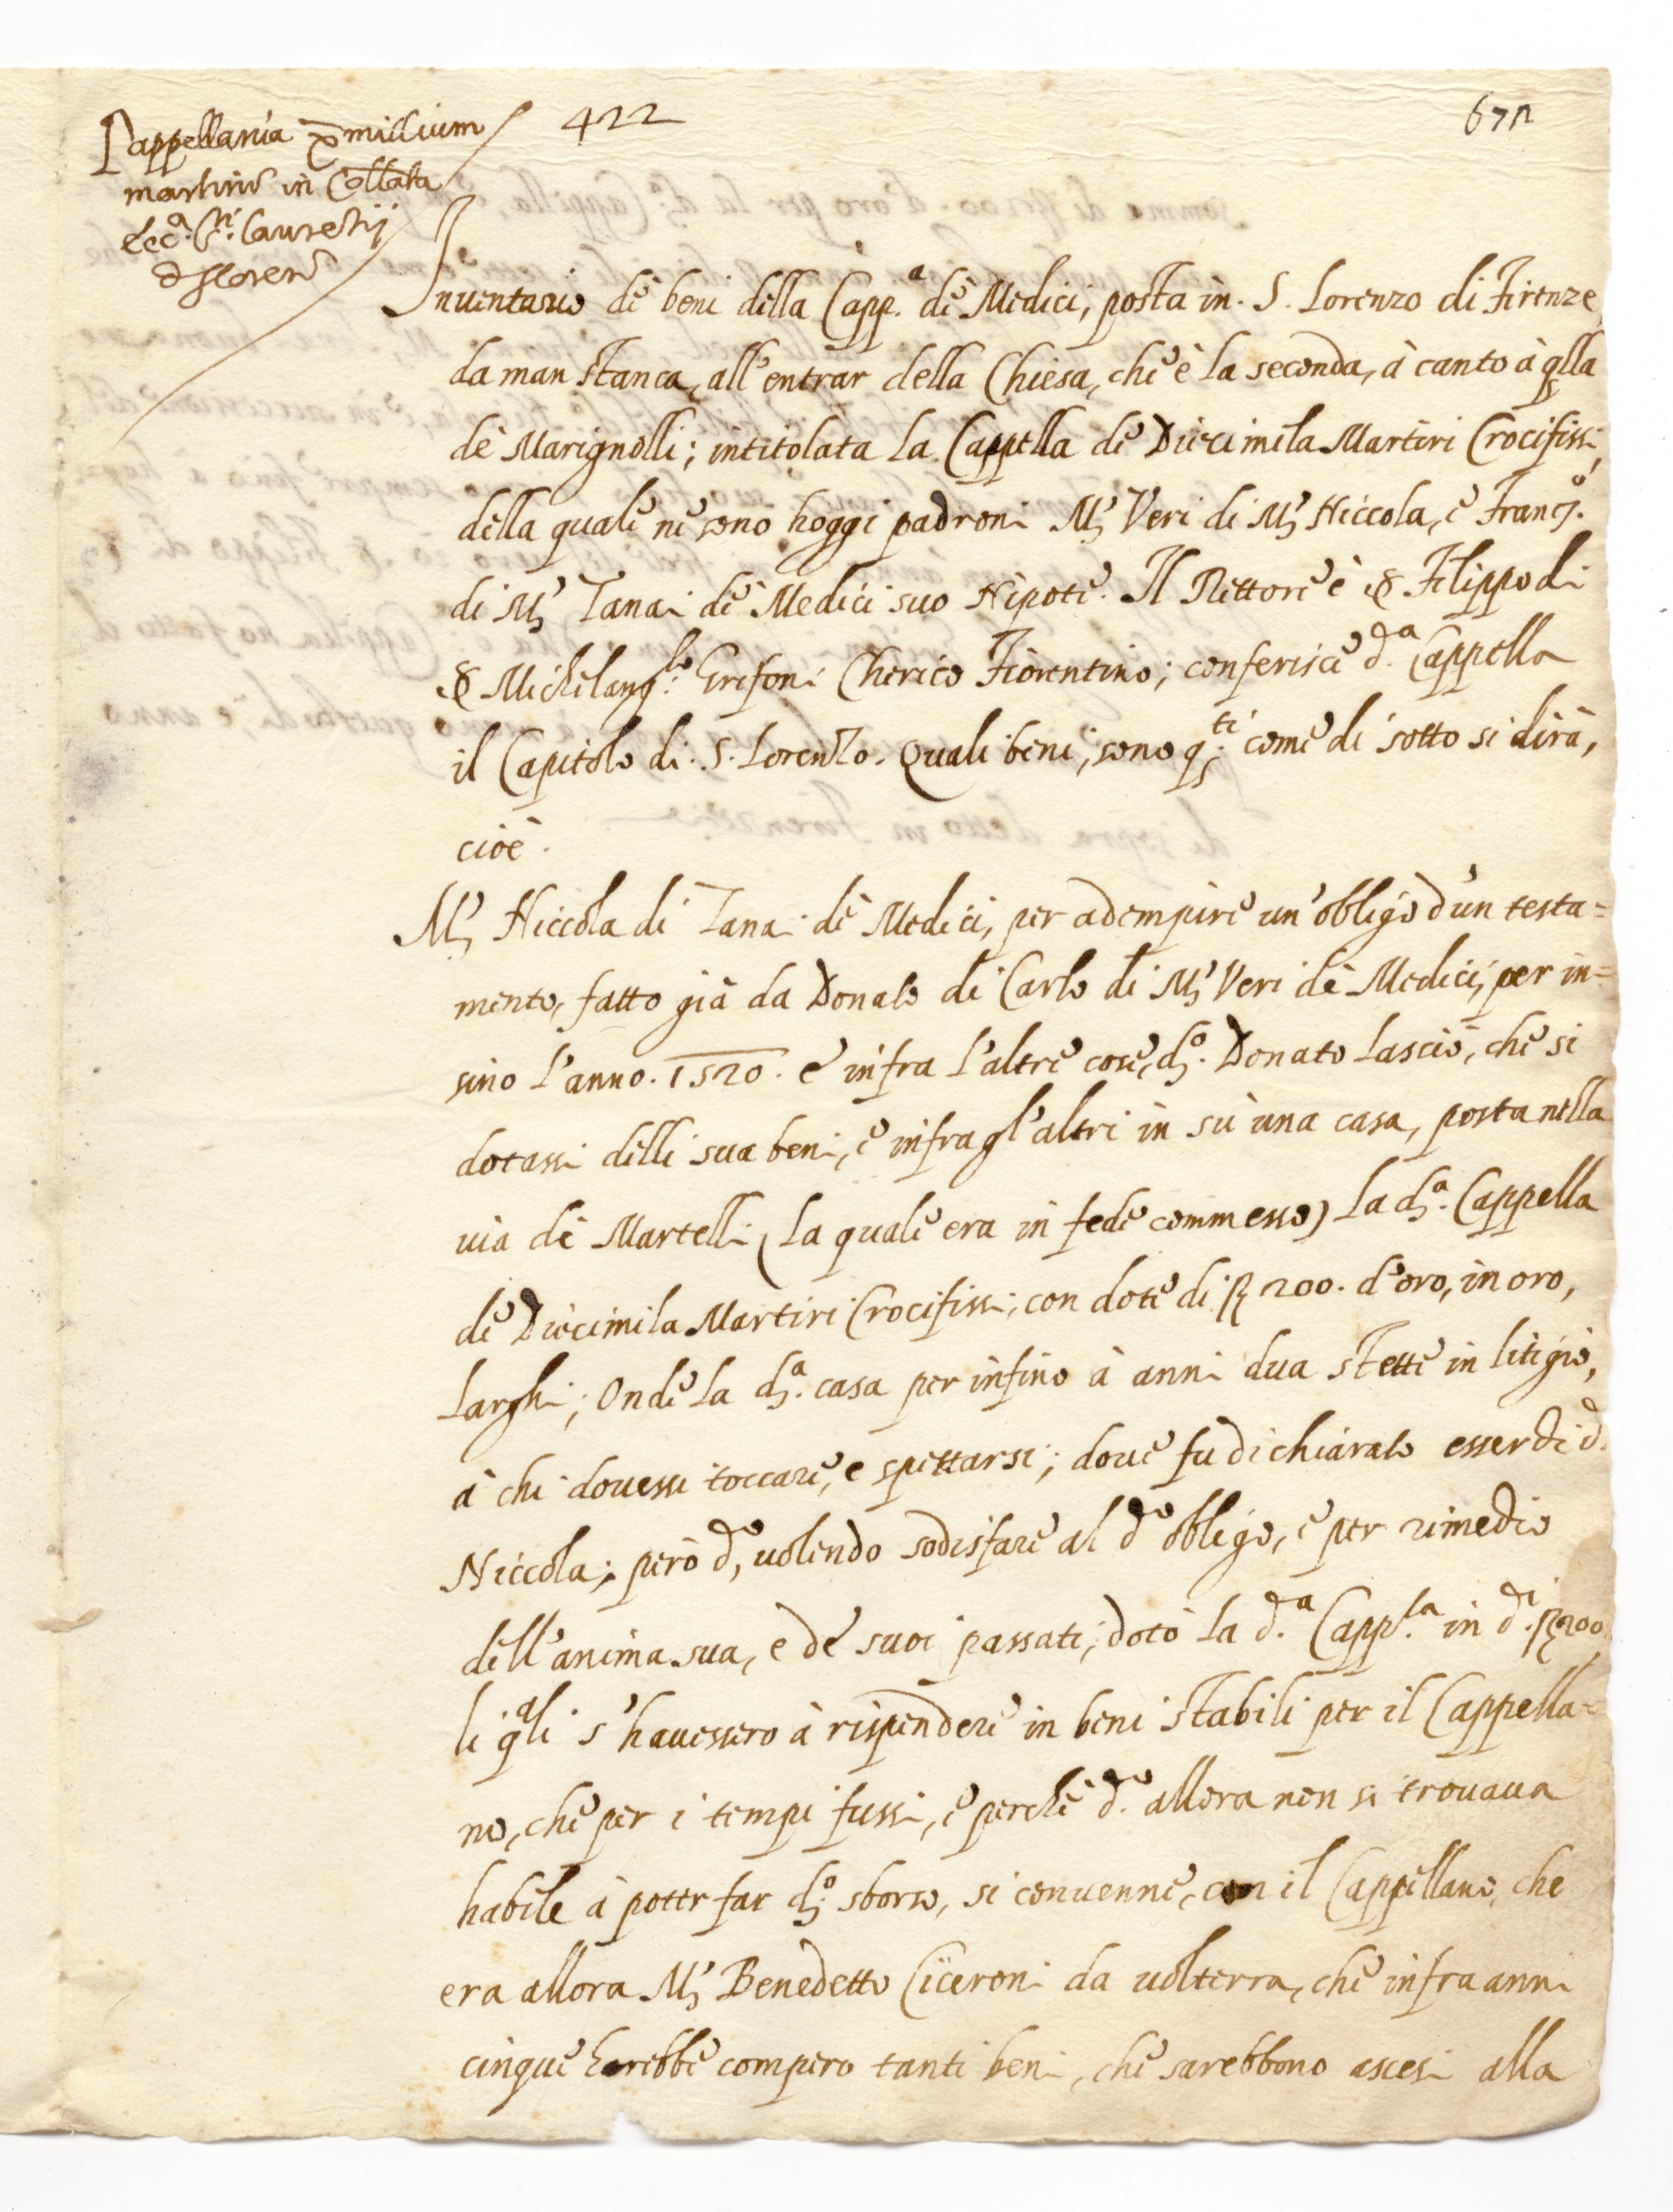 Cappellania X millium
martirũ in Collata
Ecc.ª S.ti Laurentij
d Floren
422
Inuentario de beni della Capp.ª de Medici, posta in S. Lorenzo di Firenze,
da man stanca, all'entrar della Chiesa, che è la seconda, à canto à qlla
de Marignolli; intitolata la Cappella de Diecimila Martiri Crocifissi,
della quale ne sono hoggi padroni M. Veri di M. Niccola, e Franc.º
di M. Tanai de Medici suo Nipote. Il Rettore è Filippo di
Michelang.lo Grifoni Cherico Fiorentino; conferisce d.ª Cappella
il Capitolo di S. Lorenzo. Quali beni, sono q.ti come di sotto si dirà,
cioè.
M. Niccola di Tanai de Medici, per adempire un'obligo d'un testa=
mento, fatto già da Donato di Carlo di M. Veri de Medici, per in=
sino l'anno. 1520. e infra l'altre cose, d.º Donato lasciò, che si
dotassi delli sua beni, e infra gl'altri in sù una casa, posta nella
uia de Martelli (la quale era in fede commesso) la d.ª Cappella
de Diecimila Martiri Crocifissi, con dote di 200. d'oro, in oro,
larghi; Onde la d.ª casa per infino à anni dua stette in litigio,
à chi douessi toccare, e spettarsi; doue fu dichiarato esser di d.
Niccola; però d.º, uolendo sodisfare al d.º obligo, e per rimedio
dell'anima sua, e de suoi passati, dotò la d.ª Capp.la in d.i 200
li qli s'hauessero à rispendere in beni stabili per il Cappella=
no, che per i tempi fussi, e perche d.º allora non si trouaua
habile à poter far d.º sborso, si conuenne, con il Cappellano, che
era allora M. Benedetto Ciceroni da uolterra, che infra anni
cinque harebbe compero tanti beni, che sarebbono ascesi alla